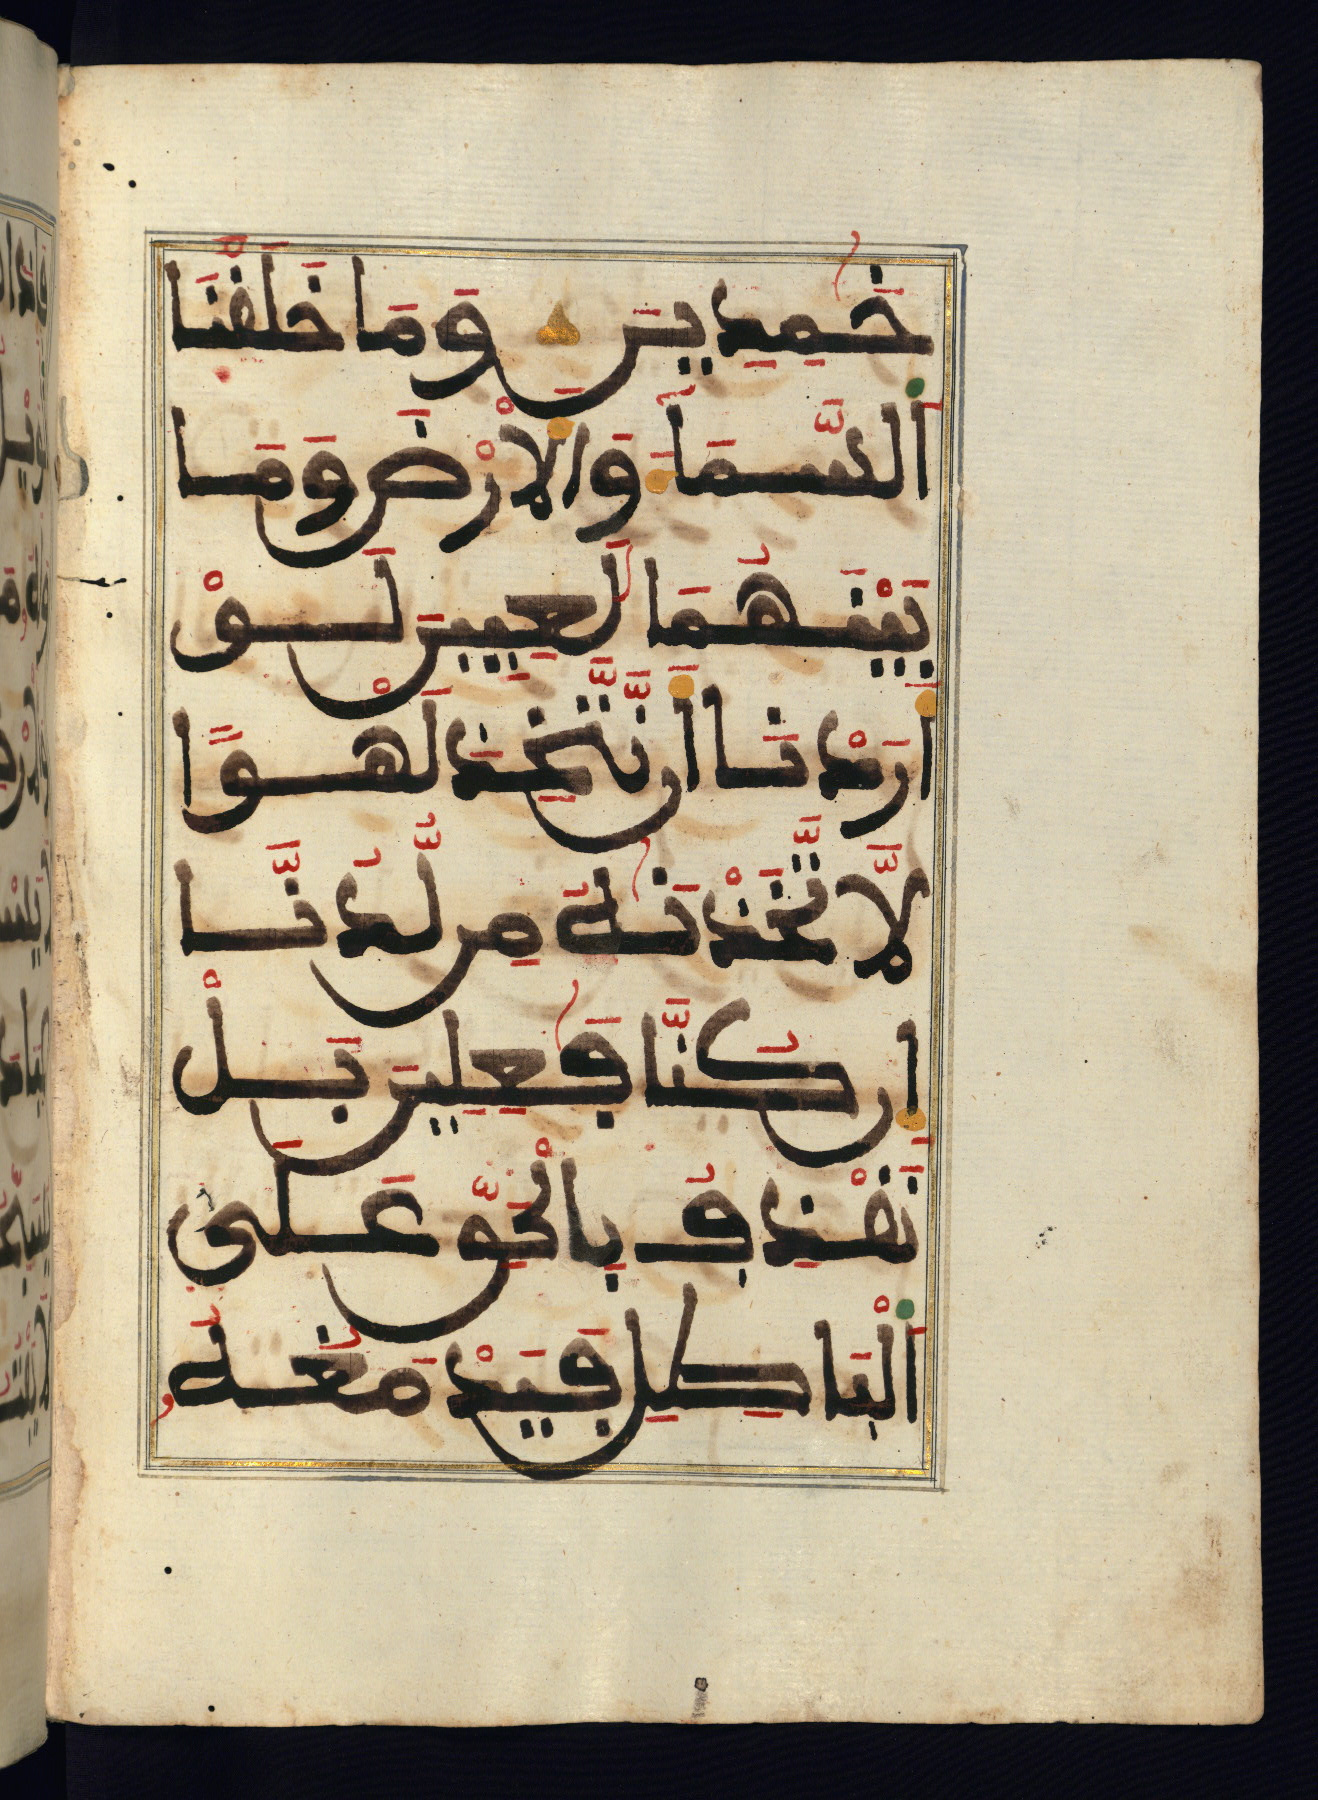 خَٰمِدِينَ وَمَا خَلَقْنَا
اَ۬لسَّمَآءَ وَالَارْضَ وَمَا
بَيْنَهُمَا لَٰعِبِينَ لَوْ
أَرَدْنَا أَن نَّتَّخِذَ لَهْوًا
لَّاتَّخَذْنَٰهُ مِن لَّدُنَّا
إِن كُنَّا فَٰعِلِينَ بَلْ
نَقْذِفُ بِالْحَقِّ عَلَى
اَ۬لْبَٰطِلِ فَيَدْمَغُهُۥ